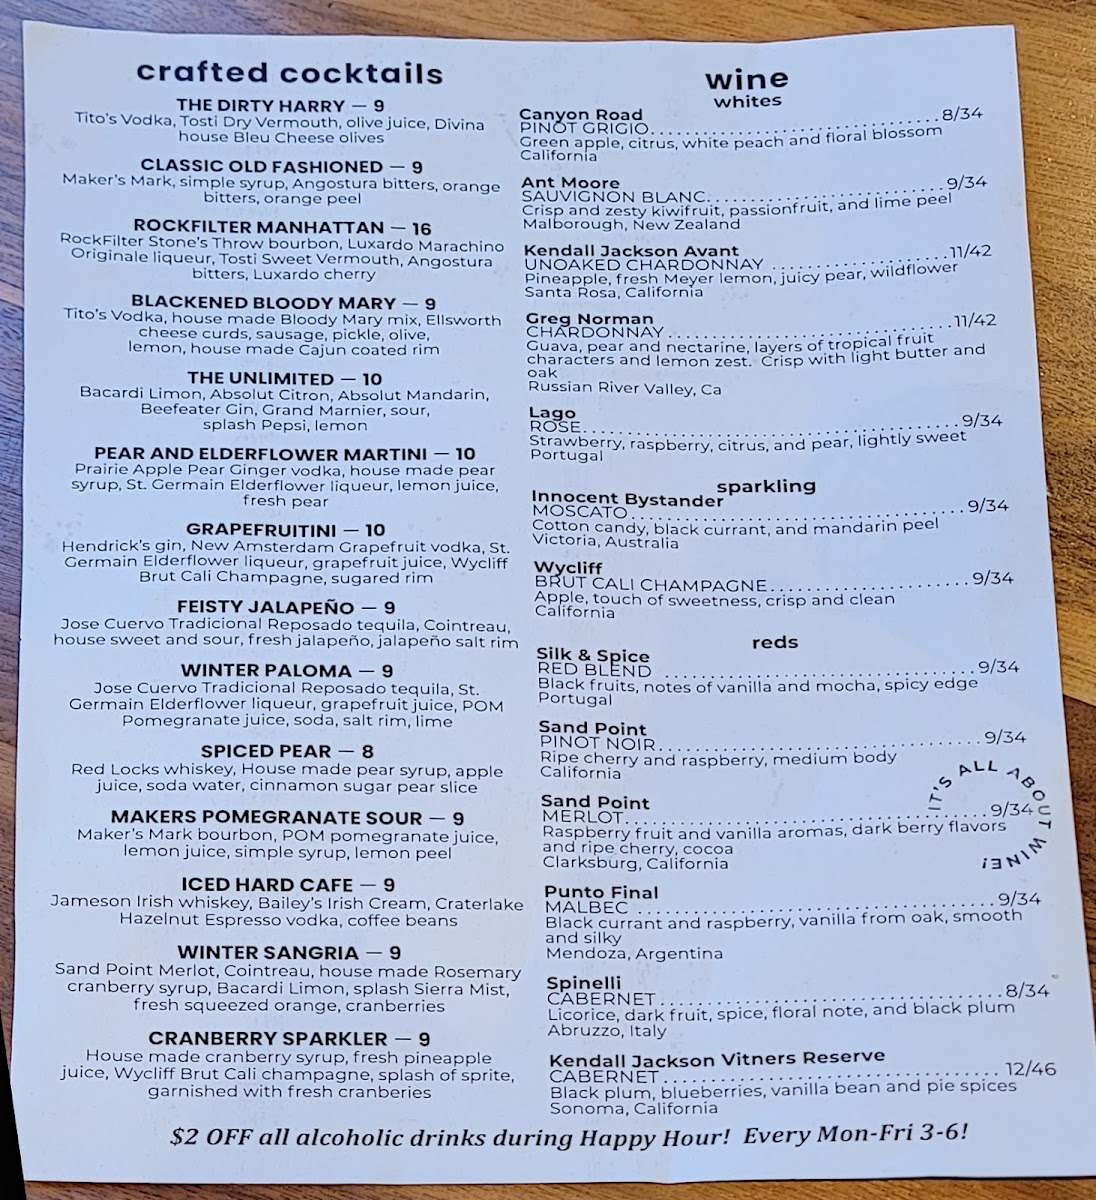 crafted cocktails
THE DIRTY HARRY — 9
Tito's Vodka, Tosti Dry Vermouth, olive juice, Divina
house Bleu Cheese olives
CLASSIC OLD FASHIONED — 9
Maker's Mark, simple syrup, Angostura bitters, orange
bitters, orange peel
ROCKFILTER MANHATTAN — 16
RockFilter Stone's Throw bourbon, Luxardo Marachino
Originale liqueur, Tosti Sweet Vermouth, Angostura
bitters, Luxardo cherry
BLACKENED BLOODY MARY — 9
Tito's Vodka, house made Bloody Mary mix, Ellsworth
cheese curds, sausage, pickle, olive,
lemon, house made Cajun coated rim
THE UNLIMITED — 10
Bacardi Limon, Absolut Citron, Absolut Mandarin,
Beefeater Gin, Grand Marnier, sour,
splash Pepsi, lemon
PEAR AND ELDERFLOWER MARTINI — 10
Prairie Apple Pear Ginger vodka, house made pear
syrup, St. Germain Elderflower liqueur, lemon juice,
fresh pear
GRAPEFRUITINI — 10
Hendrick's gin, New Amsterdam Grapefruit vodka, St.
Germain Elderflower liqueur, grapefruit juice, Wycliff
Brut Cali Champagne, sugared rim
FEISTY JALAPEÑO — 9
Jose Cuervo Tradicional Reposado tequila, Cointreau,
house sweet and sour, fresh jalapeño, jalapeño salt rim
WINTER PALOMA — 9
Jose Cuervo Tradicional Reposado tequila, St.
Germain Elderflower liqueur, grapefruit juice, POM
Pomegranate juice, soda, salt rim, lime
SPICED PEAR — 8
Red Locks whiskey, House made pear syrup, apple
juice, soda water, cinnamon sugar pear slice
MAKERS POMEGRANATE SOUR — 9
Maker's Mark bourbon, POM pomegranate juice,
lemon juice, simple syrup, lemon peel
ICED HARD CAFE — 9
Jameson Irish whiskey, Bailey's Irish Cream, Craterlake
Hazelnut Espresso vodka, coffee beans
WINTER SANGRIA — 9
Sand Point Merlot, Cointreau, house made Rosemary
cranberry syrup, Bacardi Limon, splash Sierra Mist,
fresh squeezed orange, cranberries
CRANBERRY SPARKLER — 9
House made cranberry syrup, fresh pineapple
juice, Wycliff Brut Cali champagne, splash of sprite,
garnished with fresh cranberies
wine
whites
Canyon Road
PINOT GRIGIO........................................8/34
Green apple, citrus, white peach and floral blossom
California
Ant Moore
SAUVIGNON BLANC.................................9/34
Crisp and zesty kiwifruit, passionfruit, and lime peel
Malborough, New Zealand
Kendall Jackson Avant
UNOAKED CHARDONNAY ........................11/42
Pineapple, fresh Meyer lemon, juicy pear, wildflower
Santa Rosa, California
Greg Norman
CHARDONNAY.......................................11/42
Guava, pear and nectarine, layers of tropical fruit
characters and lemon zest. Crisp with light butter and
oak
Russian River Valley, Ca
Lago
ROSE....................................................9/34
Strawberry, raspberry, citrus, and pear, lightly sweet
Portugal
sparkling
Innocent Bystander
MOSCATO..............................................9/34
Cotton candy, black currant, and mandarin peel
Victoria, Australia
Wycliff
BRUT CALI CHAMPAGNE...........................9/34
Apple, touch of sweetness, crisp and clean
California
reds
Silk & Spice
RED BLEND ..........................................9/34
Black fruits, notes of vanilla and mocha, spicy edge
Portugal
Sand Point
PINOT NOIR..........................................9/34
Ripe cherry and raspberry, medium body
California
Sand Point
MERLOT................................................9/34
Raspberry fruit and vanilla aromas, dark berry flavors
and ripe cherry, cocoa
Clarksburg, California
IT'S ALL ABOUT WINE!
Punto Final
MALBEC ...............................................9/34
Black currant and raspberry, vanilla from oak, smooth
and silky
Mendoza, Argentina
Spinelli
CABERNET............................................8/34
Licorice, dark fruit, spice, floral note, and black plum
Abruzzo, Italy
Kendall Jackson Vitners Reserve
CABERNET........................................... 12/46
Black plum, blueberries, vanilla bean and pie spices
Sonoma, California
$2 OFF all alcoholic drinks during Happy Hour! Every Mon-Fri 3-6!